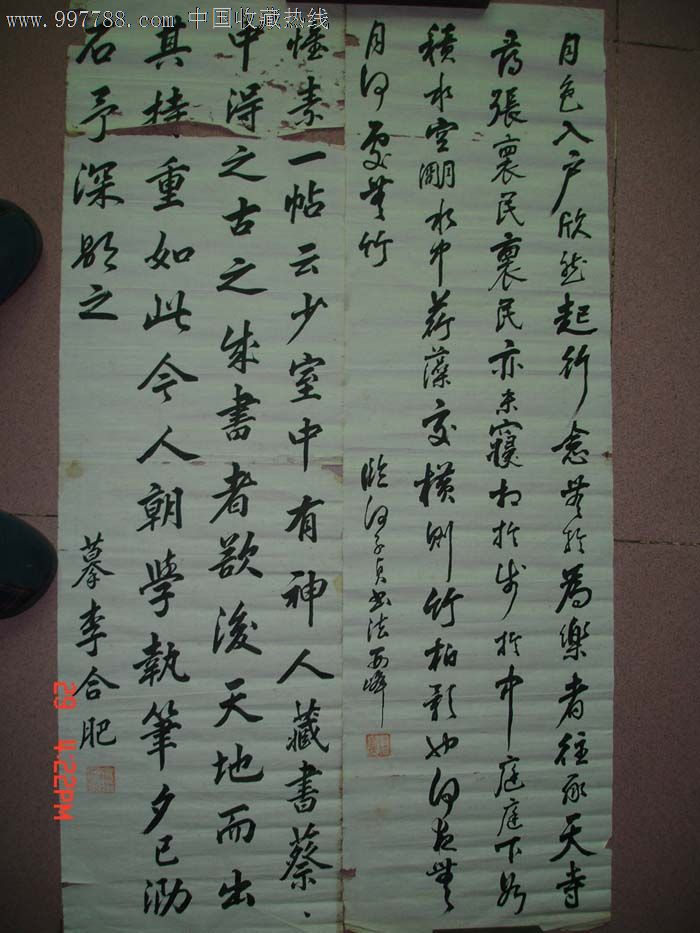 www.997788.com 中国收藏热线
月色入户欣然起行念無於為樂者往承天寺
尋張裏民裏民亦未寢相於步於中庭庭下如
積水空明水中荇藻交橫則竹柏影也何夜無
月何處無竹
臨何子貞书法 西峰
懷素一帖云少室中有神人藏書蔡、
中得之古之成書者欲後天地而出
其持重如此今人朝學執筆夕已泐
石予深鄙之
摹李合肥
29 4:22PM